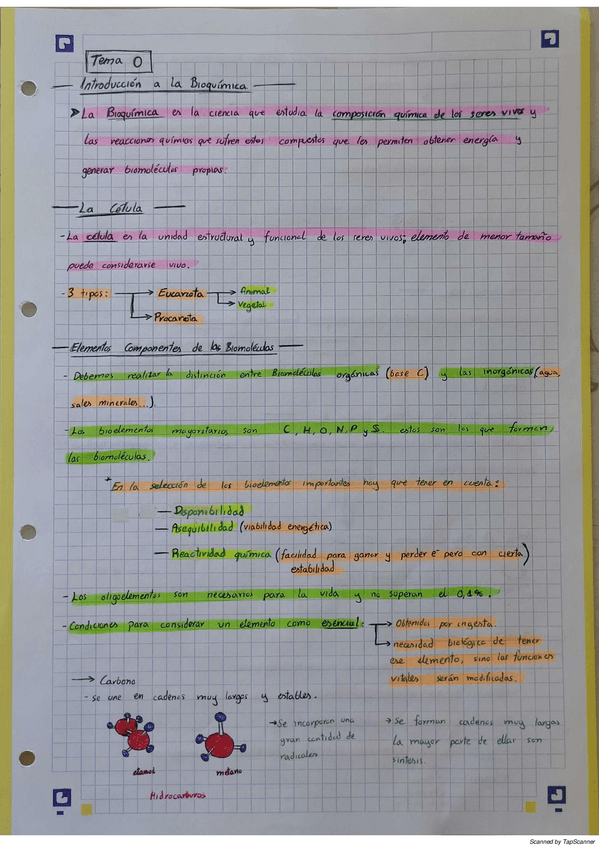 Tema 0
Introducción a la Bioquímica
➤ La Bioquímica es la ciencia que estudia la composición química de los seres vivos y
las reacciones químicas que sufren estos compuestos que les permiten obtener energía y
generar biomoléculas propias.
La Célula
- La célula es la unidad estructural y funcional de los seres vivos; elemento de menor tamaño
puede considerarse vivo.
- 3 tipos: → Eucariota → Animal
→ Vegetal
→ Procariota
Elementos Componentes de las Biomoléculas
- Debemos realizar la distinción entre Biomoléculas orgánicas (base C) y las inorgánicas (agua,
sales minerales...)
- Los bioelementos mayoritarios son C, H, O, N, P y S. estos son los que forman
las biomoléculas.
* En la selección de los bioelementos importantes hay que tener en cuenta:
— Disponibilidad
— Asequibilidad (viabilidad energética)
— Reactividad química (facilidad para ganar y perder e⁻ pero con cierta
estabilidad)
- Los oligoelementos son necesarios para la vida y no superan el 0,1%.
- Condiciones para considerar un elemento como esencial: → Obtenidos por ingesta.
→ necesidad biológica de tener
ese elemento, sino las funciones
vitales serán modificadas.
→ Carbono
- Se une en cadenas muy largas y estables.
→ Se incorporan una
gran cantidad de
radicales
→ Se forman cadenas muy largas
la mayor parte de ellas son
síntesis.
etanol metano
Hidrocarburos
Scanned by TapScanner